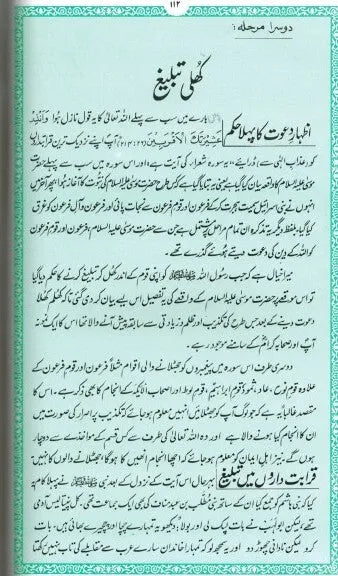 ۱۱۲
دوسرا مرحلہ:
کھلی تبلیغ
اظہارِ دعوت کا پہلا حکم
اس بارے میں سب سے پہلے اللہ تعالیٰ کا یہ قول نازل ہوا وَأَنْذِرْ
عَشِيْرَتَكَ الْاَقْرَبِيْنَ آپ اپنے نزدیک ترین قرابتداروں
کو (عذاب الٰہی سے) ڈرائیے۔ یہ سورہ شعراء کی آیت ہے اور اس سورہ میں سب سے پہلے حضرت
موسیٰ علیہ السلام کا واقعہ بیان کیا گیا ہے یعنی یہ بتایا گیا ہے کہ کس طرح حضرت موسیٰ علیہ السلام کی نبوت کا آغاز ہوا پھر آخر میں
انہوں نے بنی اسرائیل سمیت ہجرت کر کے فرعون اور قوم فرعون سے نجات پائی اور فرعون و آل فرعون کو غرق
کیا گیا۔ بلفظ دیگر یہ تذکرہ ان تمام مراحل پر مشتمل ہے جن سے حضرت موسیٰ علیہ السلام، فرعون اور قوم فرعون
کو اللہ کے دین کی دعوت دیتے ہوئے گذرے تھے۔
میرا خیال ہے کہ جب رسول اللہ ﷺ کو اپنی قوم کے اندر کھل کر تبلیغ کرنے کا حکم دیا گیا
تو اس موقعے پر حضرت موسیٰ علیہ السلام کے واقعے کی یہ تفصیل اس لیے بیان کر دی گئی تا کہ کھلم کھلا
دعوت دینے کے بعد جس طرح کی تکذیب اور ظلم و زیادتی سے سابقہ پیش آنے والا تھا اس کا ایک نمونہ
آپ اور صحابہ کرام کے سامنے موجود رہے۔
دوسری طرف اس سورہ میں پیغمبروں کو جھٹلانے والی اقوام مثلاً فرعون اور قوم فرعون کے
علاوہ قوم نوح، عاد، ثمود، قوم ابراہیم، قوم لوط اور اصحاب الایکہ کے انجام کا بھی ذکر ہے۔ اس کا
مقصد غالباً یہ ہے کہ جو لوگ آپ کو جھٹلائیں انہیں معلوم ہو جائے کہ تکذیب پر اصرار کی صورت میں
ان کا انجام کیا ہونے والا ہے اور وہ اللہ تعالیٰ کی طرف سے کس قسم کے مواخذے سے دوچار
ہوں گے۔ نیز اہل ایمان کو معلوم ہو جائے کہ اچھا انجام انہیں کا ہوگا، جھٹلانے والوں کا نہیں۔
قرابت داروں میں تبلیغ
بہر حال اس آیت کے نزول کے بعد نبی ﷺ نے پہلا کام یہ
کیا کہ بنی ہاشم کو جمع کیا ان کے ساتھ بنی مطلب بن عبد مناف کی بھی ایک جماعت تھی۔ کل پینتالیس آدمی
تھے، لیکن ابولہب نے بات لپک لی اور بولا: دیکھو یہ تمہارے چچا اور چچیرے بھائی ہیں۔ بات
کرو لیکن نادانی چھوڑ دو اور یہ سمجھ لو کہ تمہارا خاندان سارے عرب سے مقابلے کی تاب نہیں رکھتا